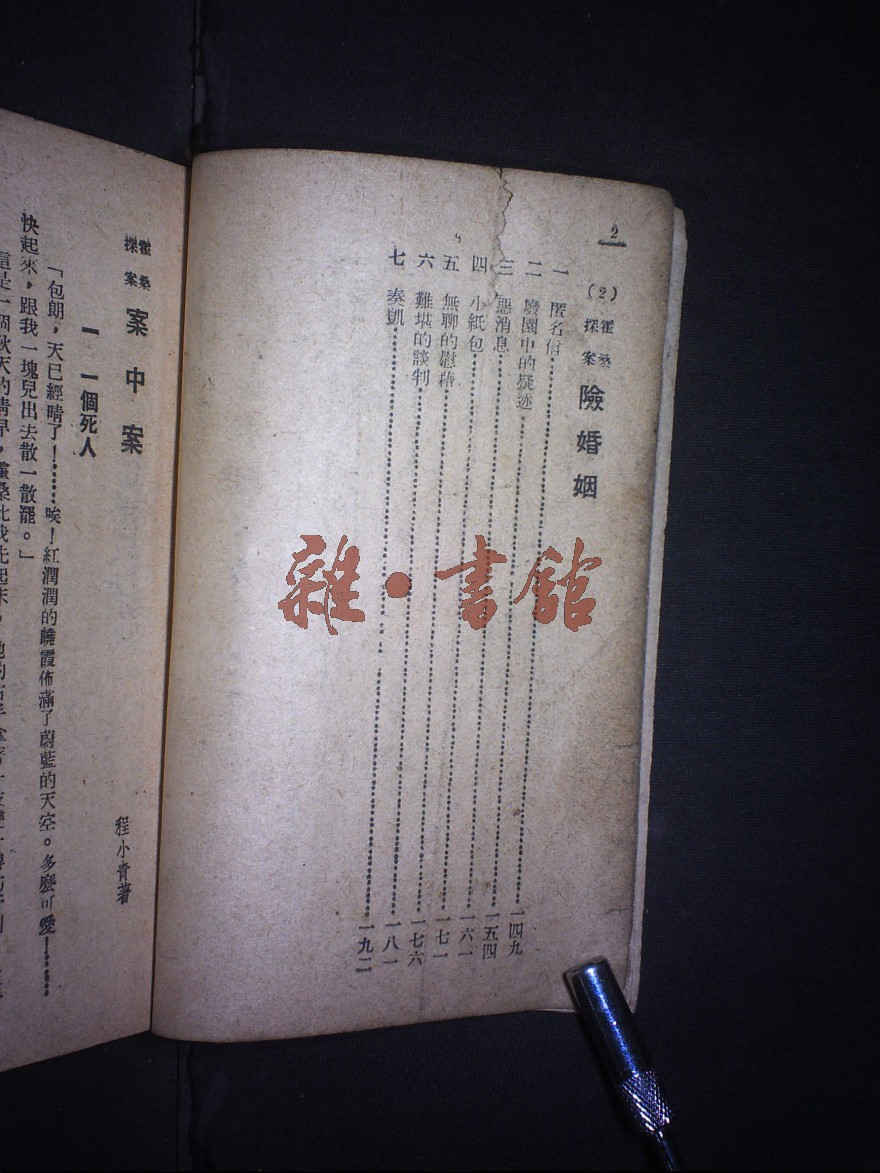 2
(2) 霍桑探案 險婚姻
一 匿名信 一四九
二 廢園中的疑迹 一五四
三 惡消息 一六一
四 小紙包 一七一
五 無聊的慰藉 一七六
六 難堪的談判 一八一
七 奏凱 一九二
霍桑探案 案中案
程小青著
一 一個死人
「包朗，天已經晴了！……唉！紅潤潤的曉霞佈滿了蔚藍的天空。多麼可愛！……
快起來，跟我一塊兒出去散一散罷。」
這是一個秋天的清早，霍桑比我先起床。他的右手拿着
雜·書館